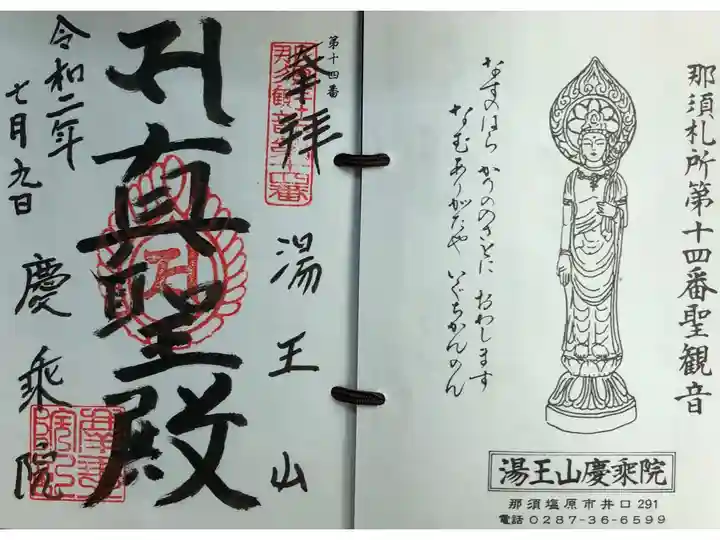 那須札所第十四番聖観音
なすのはら かりのやどに おわします
なむありがたや いぐちかんのん
湯王山慶乗院
那須塩原市井口291
電話 0287-36-6599
第十四番
奉拝
湯王山
真聖殿
令和二年
七月九日
慶乗院